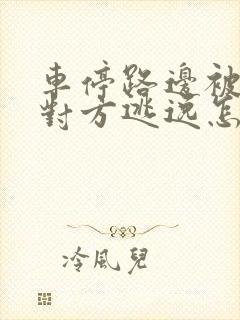 車停路邊被
對方逃逸怎
冷風兒